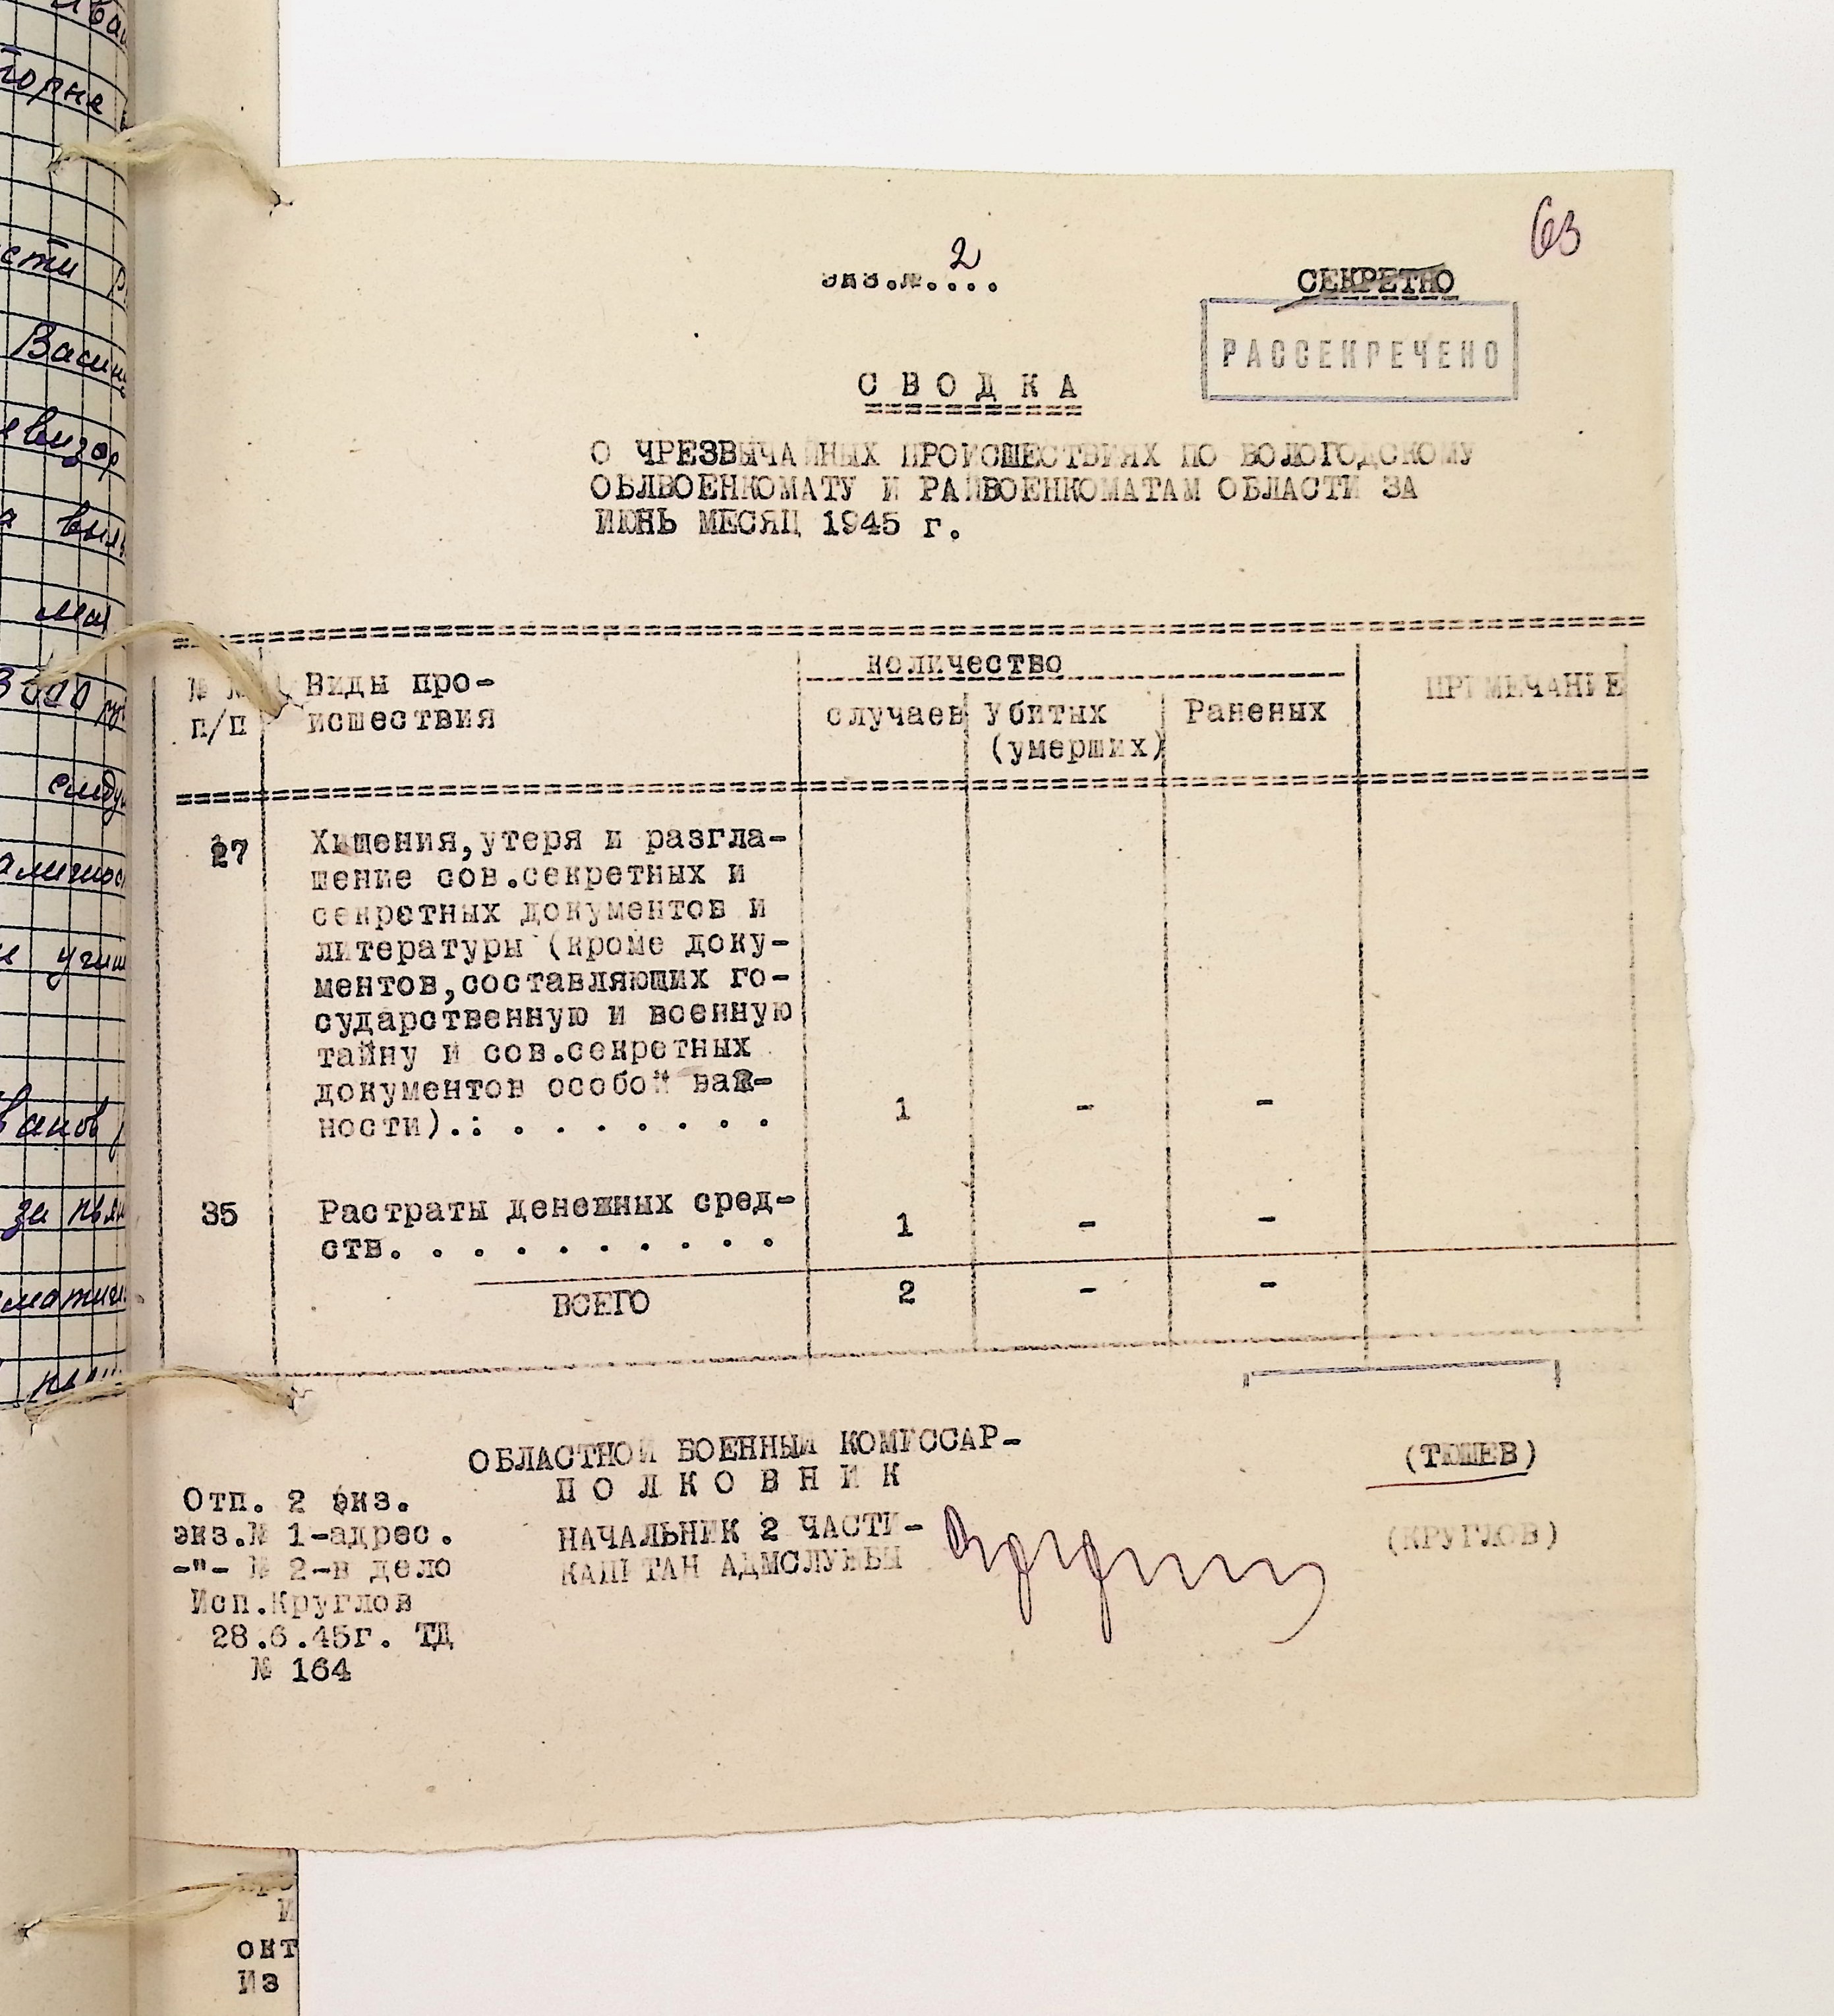 63
экз.№.2...
СЕКРЕТНО
РАССЕКРЕЧЕНО
С В О Д К А
О ЧРЕЗВЫЧАЙНЫХ ПРОИСШЕСТВИЯХ ПО ВОЛОГОДСКОМУ
ОБЛВОЕНКОМАТУ И РАЙВОЕНКОМАТАМ ОБЛАСТИ ЗА
ИЮНЬ МЕСЯЦ 1945 г.
№ №
п/п
Виды про-
исшествия
количество
случаев
Убитых
(умерших)
Раненых
ПРИМЕЧАНИЕ
27
Хищения,утеря и разгла-
шение сов.секретных и
секретных документов и
литературы (кроме доку-
ментов,составляющих го-
сударственную и военную
тайну и сов.секретных
документов особой важ-
ности).: . . . . . . . 1 - -
35
Растраты денежных сред-
ств. . . . . . . . . . 1 - -
ВСЕГО 2 - -
ОБЛАСТНОЙ ВОЕННЫЙ КОМИССАР-
П О Л К О В Н И К
(ТЮШЕВ)
НАЧАЛЬНИК 2 ЧАСТИ-
КАПИТАН АДМСЛУЖБЫ
(КРУГЛОВ)
Отп. 2 экз.
экз.№ 1-адрес.
-"- № 2-в дело
Исп.Круглов
28.6.45г. ТД
№ 164
торне
сти
Васи
мая
3000
следу
за
окт
Из